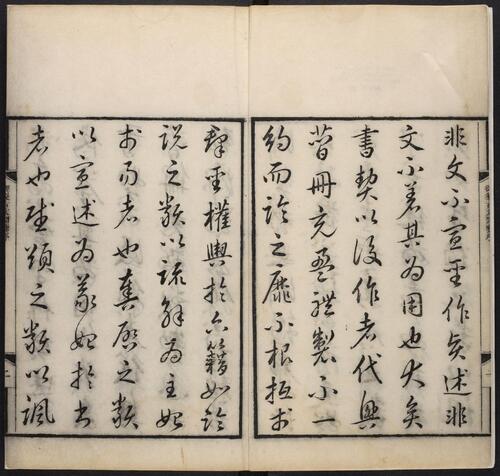 非文不宣聖作賢述非
文不著其為用也大矣
書契以後作者代興
簡冊充盈體製不一
約而論之靡不根柢於
群聖權輿於六籍如論
說之類以疏解為主始
於易者也奏啟之類
以宣述為義始於書
者也賦頌之類以諷